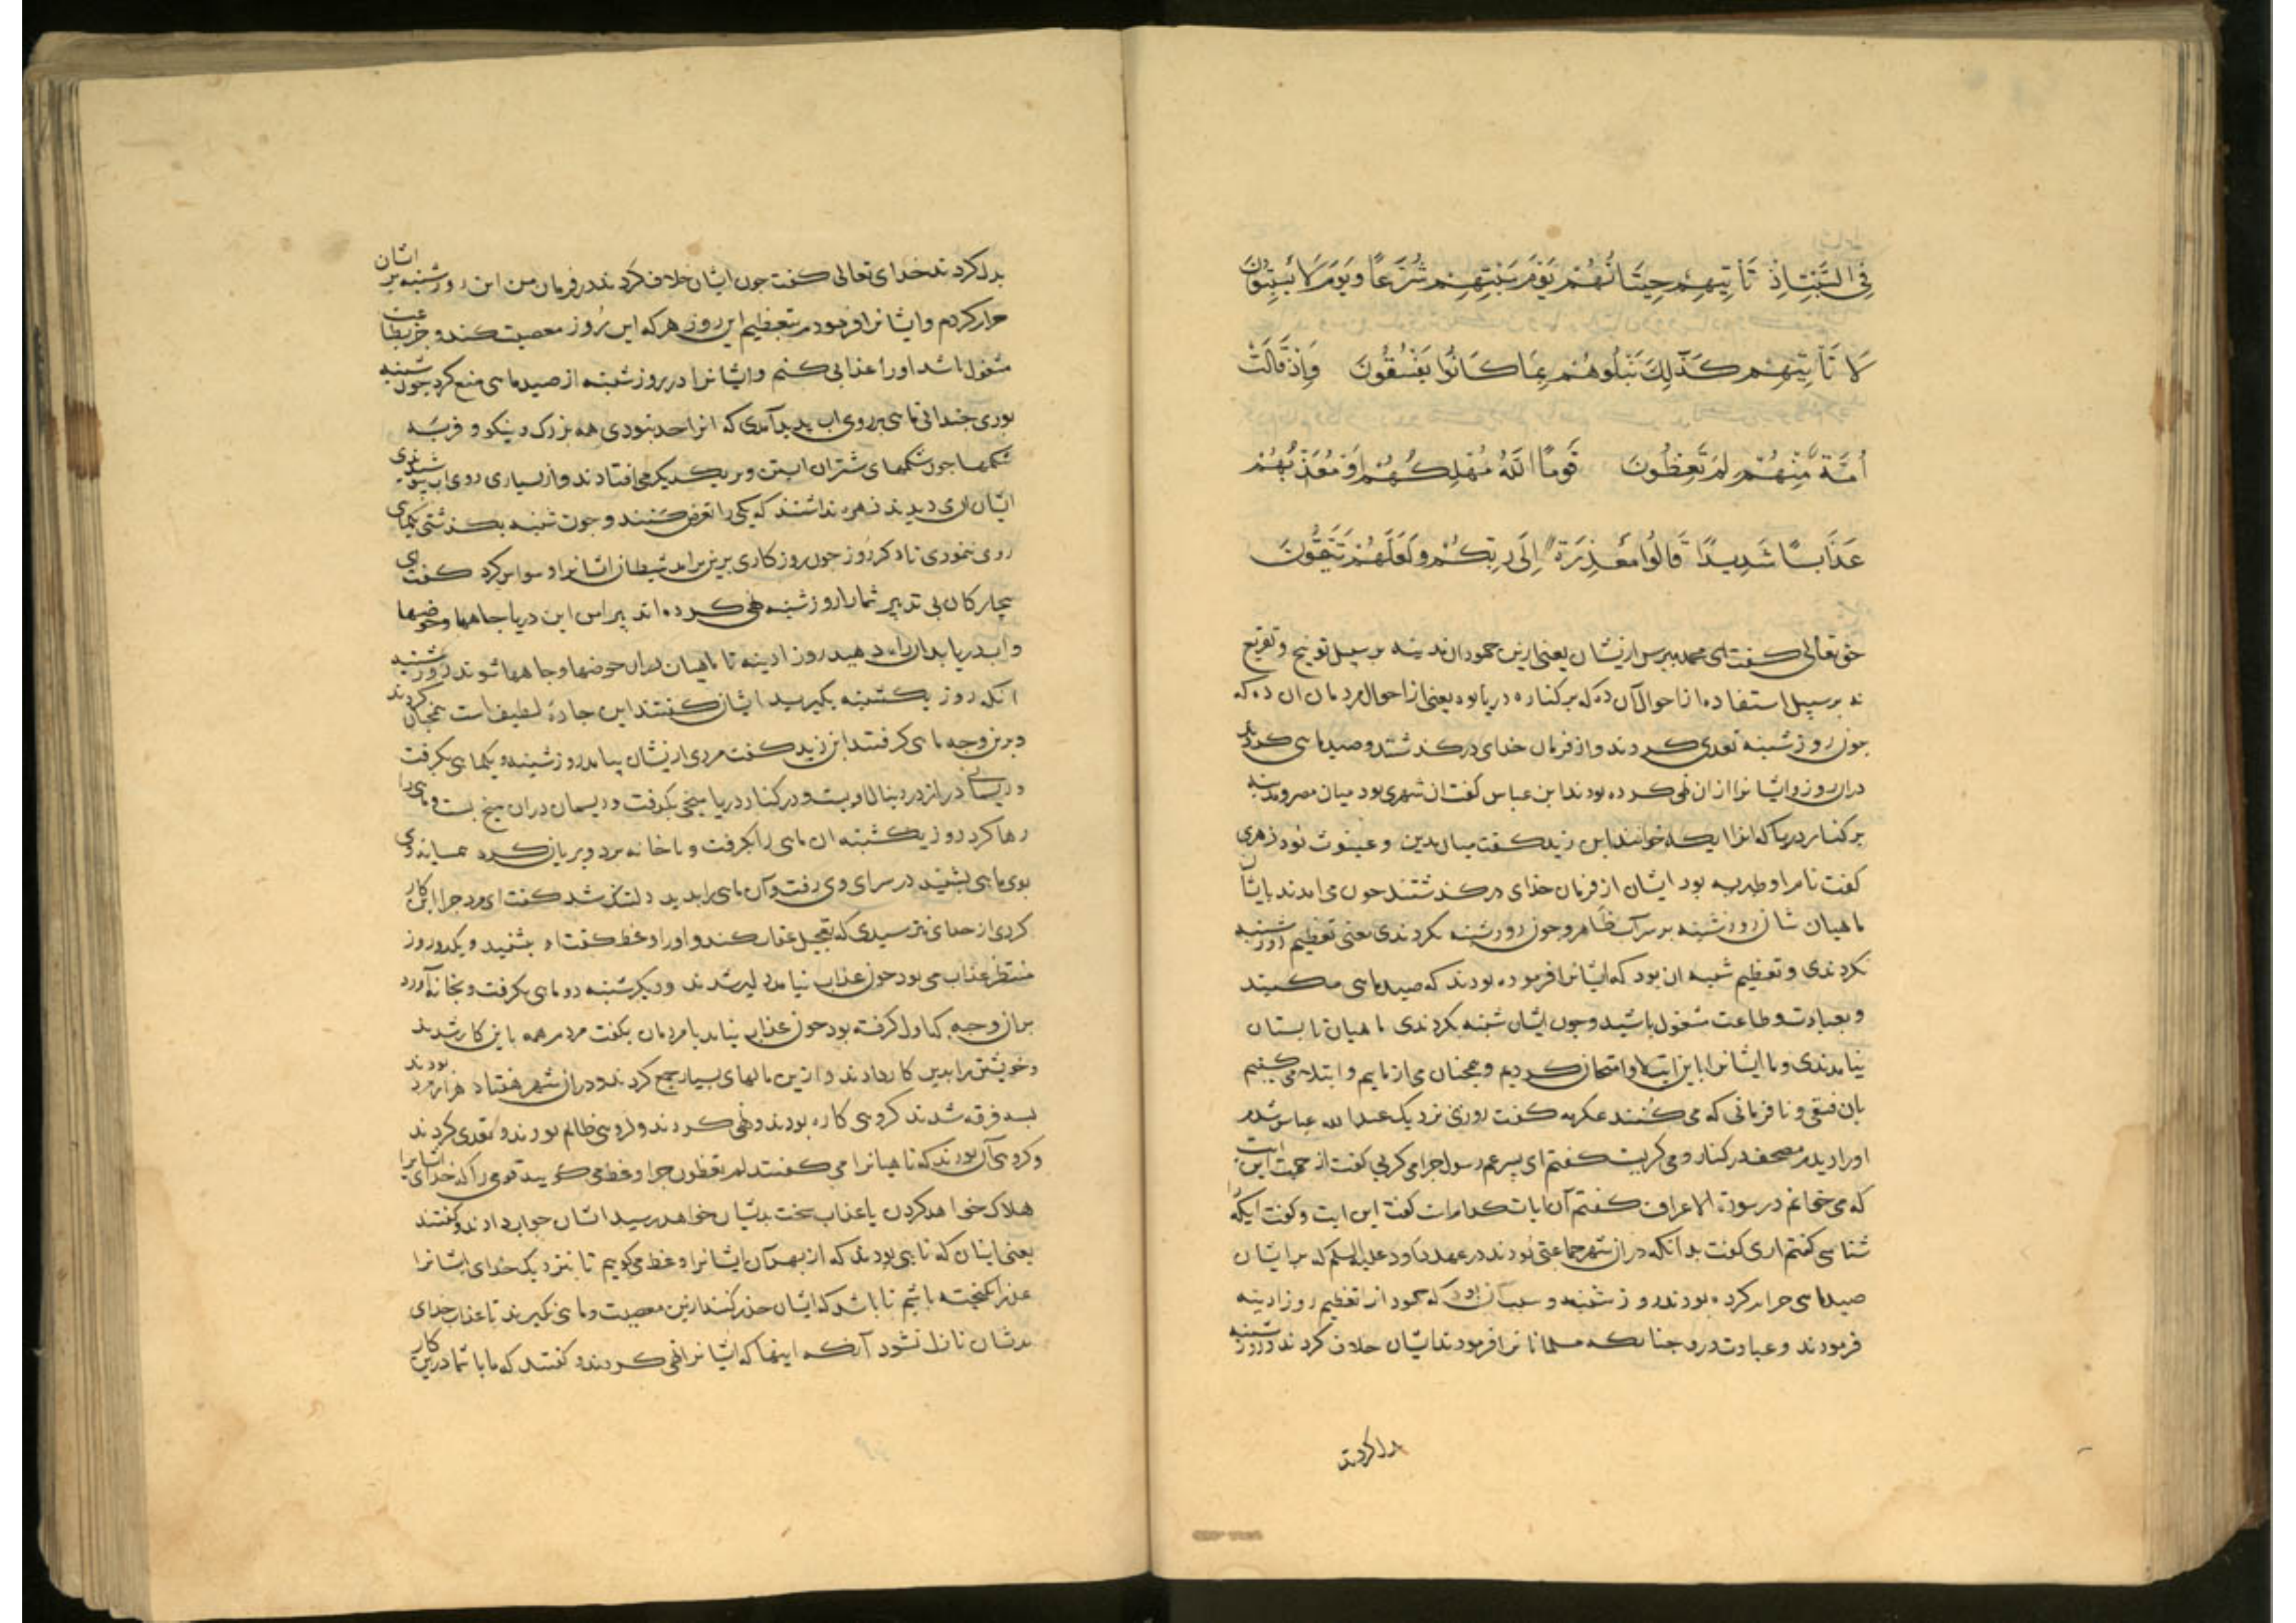 فِي السَّبْتِ إِذْ تَأْتِيهِمْ حِيتَانُهُمْ يَوْمَ سَبْتِهِمْ شُرَّعًا وَيَوْمَ لَا يَسْبِتُونَ
لَا تَأْتِيهِمْ كَذَٰلِكَ نَبْلُوهُمْ بِمَا كَانُوا يَفْسُقُونَ وَإِذْ قَالَتْ
أُمَّةٌ مِّنْهُمْ لِمَ تَعِظُونَ قَوْمًا اللَّهُ مُهْلِكُهُمْ أَوْ مُعَذِّبُهُمْ
عَذَابًا شَدِيدًا قَالُوا مَعْذِرَةً إِلَى رَبِّكُمْ وَلَعَلَّهُمْ يَتَّقُونَ
حق تعالی کفت ای محمد ببرس ازیشان یعنی ازین جهودان مدینه بر سبیل توبیخ و تقریع
نه بر سبیل استفاده از احوال آن ده که بر کناره دریا بود یعنی از احوال مردمان ان ده که
جون روز شنبه تعدی کردند و از فرمان خدای درکذشتند و صید ماهی کردند
دران روز و ایشانرا از ان نهی کرده بودند ابن عباس کفت ان شهری بود میان مصر و مدینه
بر کنار دریا که انرا ایله خوانند ابن زید کفت میان مدین و عینونا بود زهری
کفت نام او طبریه بود ایشان از فرمان خدای درکذشتند جون می امدند بایشان
ماهیان شان روز شنبه بر سر آب ظاهر و جون روز شنبه نکردندی یعنی تعظیم روز شنبه
نکردندی و تعظیم شنبه ان بود که ایشانرا فرموده بودند که صید ماهی مکنید
و بعبادت و طاعت مشغول باشید و جون ایشان شنبه نکردندی ماهیان تابستان
نیامدندی و ما ایشانرا باین ابتلا و امتحان کردیم و همجنان می ازماییم و ابتلا می کنیم
بان فسقی و نافرمانی که می کنند عکرمه کفت روزی نزدیک عبدالله عباس شدم
او را دیدم مصحف در کنار و می کریست کفتم ای پسر عم رسول جرا می کریی کفت از جهت این ایت
که می خوانم در سورة الاعراف کفتم آن ایات کدامات کفت این ایت و کفت ایله را
شناسی کفتم اری کفت بدانکه دران شهر جماعتی بودند در عهد داود علیه السلم که بر ایشان
صید ماهی حرام کرده بودند روز شنبه و سبب آن بود که جهودانرا تعظیم روز ادینه
فرمودند و عبادت درو جنانکه مسلمانانرا فرمودند ایشان خلاف کردند و روز شنبه
بدل کردند
بدل کردند خدای تعالی کفت جون ایشان خلاف کردند در فرمان من این روز شنبه بر ایشان
حرام کردم و ایشانرا فرمودم بتعظیم این روز هر که این روز معصیت کند و جز بطاعت
مشغول باشد او را عذابی کنم و ایشانرا در روز شنبه از صید ماهی منع کرد جون شنبه
بودی جندانی ماهی بر روی اب بدید آمدی که انرا حد نبودی همه بزرک و نیکو و فربه
شکمها جون شکمهای شتران ابستن و بر یکدیکر می افتادند و از بسیاری روی اب
ایشان ان می دیدند زهره نداشتند که یکی را تعرض کنند و جون شنبه بکذشتی یک ماهی
روی ننمودی تا دکر روز جون روزکاری برین بر امد شیطان ایشانرا وسواس کرد کفت ای
بیجارکان بی تدبیر شما را روز شنبه نهی کرده اند پیرامن این دریا جاهها و حوضها
و اب دریا بدان راه دهید روز ادینه تا ماهیان دران حوضها و جاهها شوند روز شنبه
انکه روز یکشنبه بکیرید ایشان کفتند این جاره لطیف است همجنان کردند
و برین وجه ماهی کرفتند ابن زید کفت مردی ازیشان بیامد روز شنبه و یک ماهی بکرفت
و ریسمانی دراز در دنبال او بست و در کنار دریا میخی بکوفت و ریسمان دران میخ بست و ماهی را
رها کرد روز یکشنبه ان ماهی را بکرفت و با خانه برد و بریان کرد همسایه وی
بوی ماهی بشنید در سرای وی رفت و آن ماهی را بدید دلتنک شد کفت ای مرد جرا این کار
کردی از خدای نترسیدی که تعجیل عقاب کند و او را وعظ کفت او بشنید و یک دو روز
منتظر عذاب می بود جون عذاب نیامد دلیر شدند و دیکر شنبه دو ماهی بکرفت و بخانه آورد
بران وجه که اول کرفته بود جون عذاب نیامد با مردمان بکفت مردم همه باین کار شدند
و خویشتن را بدین کار دادند و ازین مالهای بسیار جمع کردند و دران شهر هفتاد هزار مرد بودند
بسه فرقه شدند کروهی کاره بودند و نهی کردند و کروهی ظالم بودند و تعدی کردند
و کروهی آن بودند که ناهیانرا می کفتند لم تعظون جرا وعظ می کویید قومی را که خدای ایشانرا
هلاک خواهد کردن یا عذاب سخت بدیشان خواهد رسید ایشان جواب دادند و کفتند
یعنی اینان که ناهی بودند که از بهر آن ایشانرا وعظ می کوییم تا بنزدیک خدای ایشانرا
عذر انکیخته باشیم تا باشد که ایشان حذر کنند ازین معصیت و ماهی نکیرند تا عذاب خدای
بدیشان نازل نشود آنکه اینها که ایشانرا نهی کردند و کفتند که ما با شما درین کار